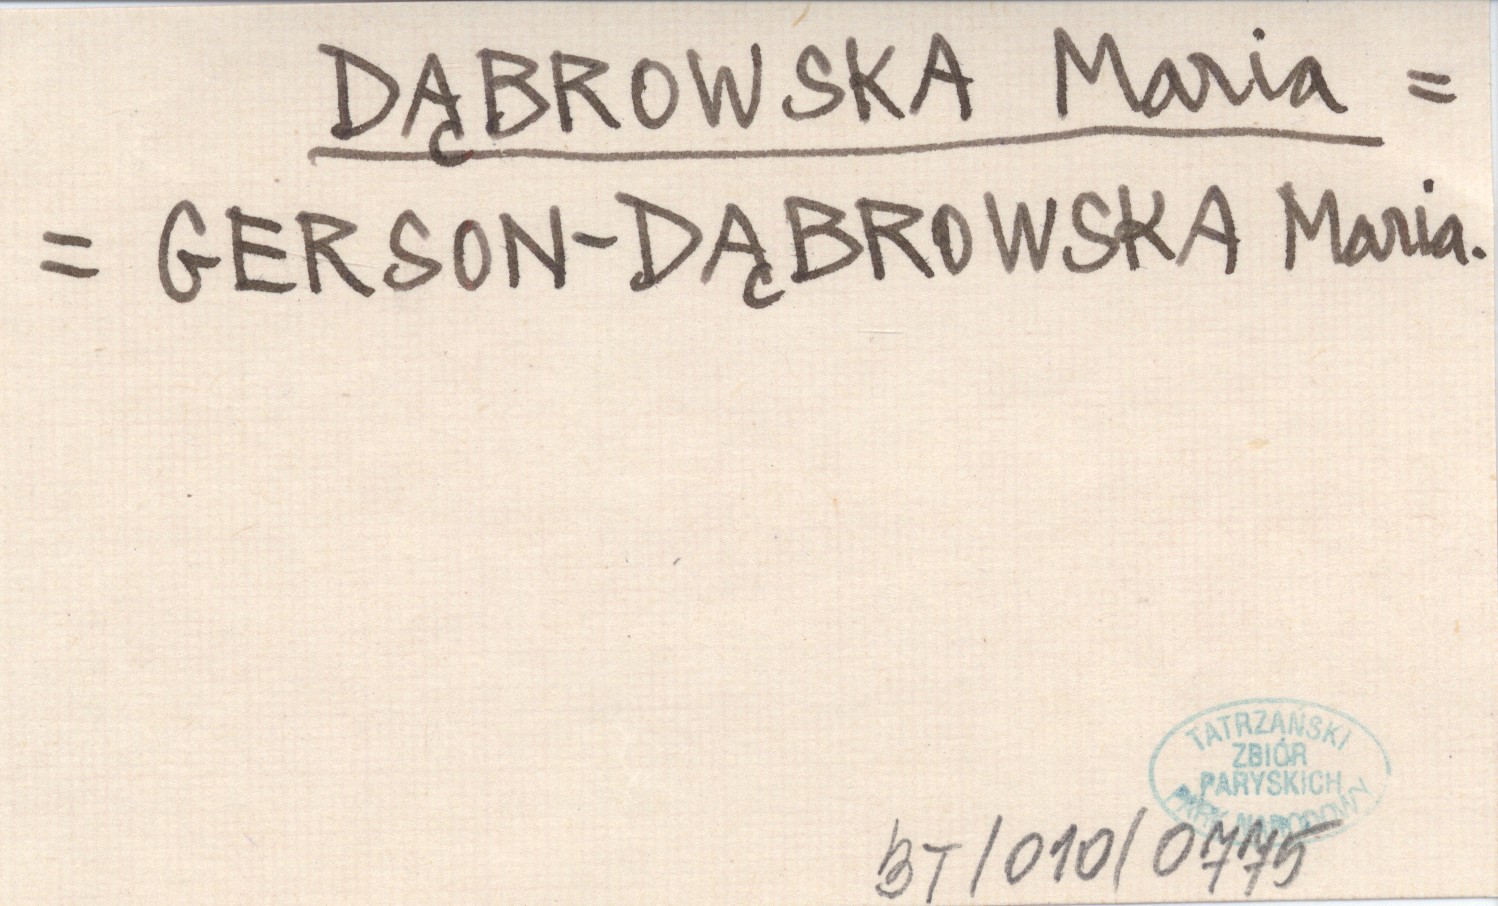 DĄBROWSKA Maria =
= GERSON-DĄBROWSKA Maria.
TATRZAŃSKI
ZBIÓR
PARYSKICH
PARK NARODOWY
BT/010/0775